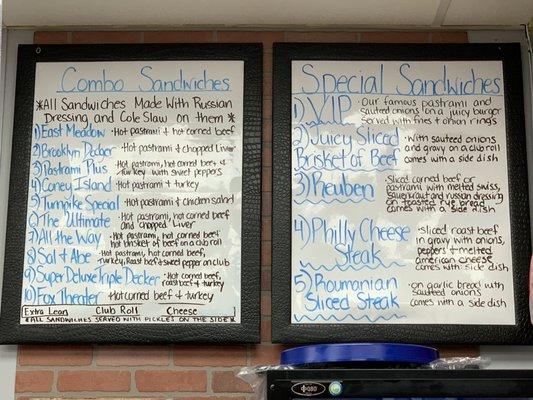 Combo Sandwiches
*All Sandwiches Made With Russian
Dressing and Cole Slaw on them *
1) East Meadow • Hot pastrami & hot corned beef
2) Brooklyn Decker • Hot pastrami & chopped Liver
3) Pastrami Plus • Hot pastrami, hot corned beef &
turkey with sweet peppers
4) Coney Island • Hot pastrami & turkey
5) Turnpike Special • Hot pastrami & chicken salad
6) The Ultimate • Hot pastrami, hot corned beef
and chopped Liver
7) All the Way • Hot pastrami, hot corned beef
hot brisket of beef on a club roll
8) Sal & Abe • Hot pastrami, hot corned beef,
turkey, Roast beef & sweet pepper on club
9) Super Deluxe Triple Decker • Hot corned beef,
roast beef & turkey
10) Fox Theater • Hot corned beef & turkey
Extra Lean Club Roll Cheese
*All sandwiches served with pickles on the side*
Special Sandwiches
1) VIP • Our famous pastrami and
sauteed onions on a juicy burger
served with fries & onion rings
2) Juicy Sliced
Brisket of Beef
• With sauteed onions
and gravy on a club roll
comes with a side dish
3) Reuben • Sliced corned beef or
pastrami with melted swiss,
sauerkraut and russian dressing
on toasted rye bread
comes with a side dish
4) Philly Cheese
Steak
• Sliced roast beef
in gravy with onions,
peppers &
melted
american cheese
comes with side dish
5) Roumanian
Sliced Steak
• on garlic bread with
sauteed onions
comes with a side dish